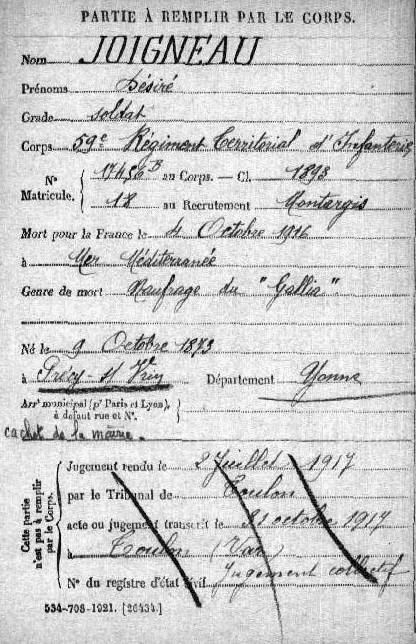 PARTIE À REMPLIR PAR LE CORPS.
Nom JOIGNEAU
Prénoms Désiré
Grade soldat
Corps 59e Régiment Territorial d'Infanterie
N° Matricule. 17436B au Corps. — Cl. 1893
18 au Recrutement Montargis
Mort pour la France le 4 Octobre 1916
à Mer Méditerranée
Genre de mort Naufrage du "Gallia"
Né le 9 Octobre 1873
à Précy-st Vrin Département Yonne
Arrt municipal (pr Paris et Lyon),
à défaut rue et N°.
cachet de la mairie.
Cette partie n'est pas à remplir par le Corps.
Jugement rendu le 2 Juillet 1917
par le Tribunal de Toulon
acte ou jugement transcrit le 31 octobre 1917
à Toulon (Var)
N° du registre d'état civil Jugement collectif
534-708-1921. [26434.]